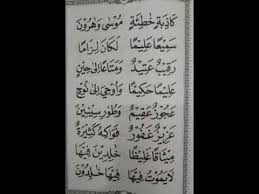 كَاذِبَةٍ خَاطِئَةٍ مُوْسٰى وَهٰرُوْنَ
سَمِيْعًا عَلِيْمًا لَكَانَ لِزَامًا
رَقِيْبٌ عَتِيْدٌ وَمَتَاعًا اِلٰى حِيْنٍ
عَلِيْمًا حَكِيْمًا وَاُوْحِيَ اِلٰى نُوْحٍ
عَجُوْزٌ عَقِيْمٌ وَطُوْرِ سِيْنِيْنَ
عَزِيْزٌ غَفُوْرٌ فَوَاكِهُ كَثِيْرَةٌ
مِيْثَاقًا غَلِيْظًا خٰلِدِيْنَ فِيْهَا
لَايَمُوْتُ فِيْهَا خٰلِدُوْنَ